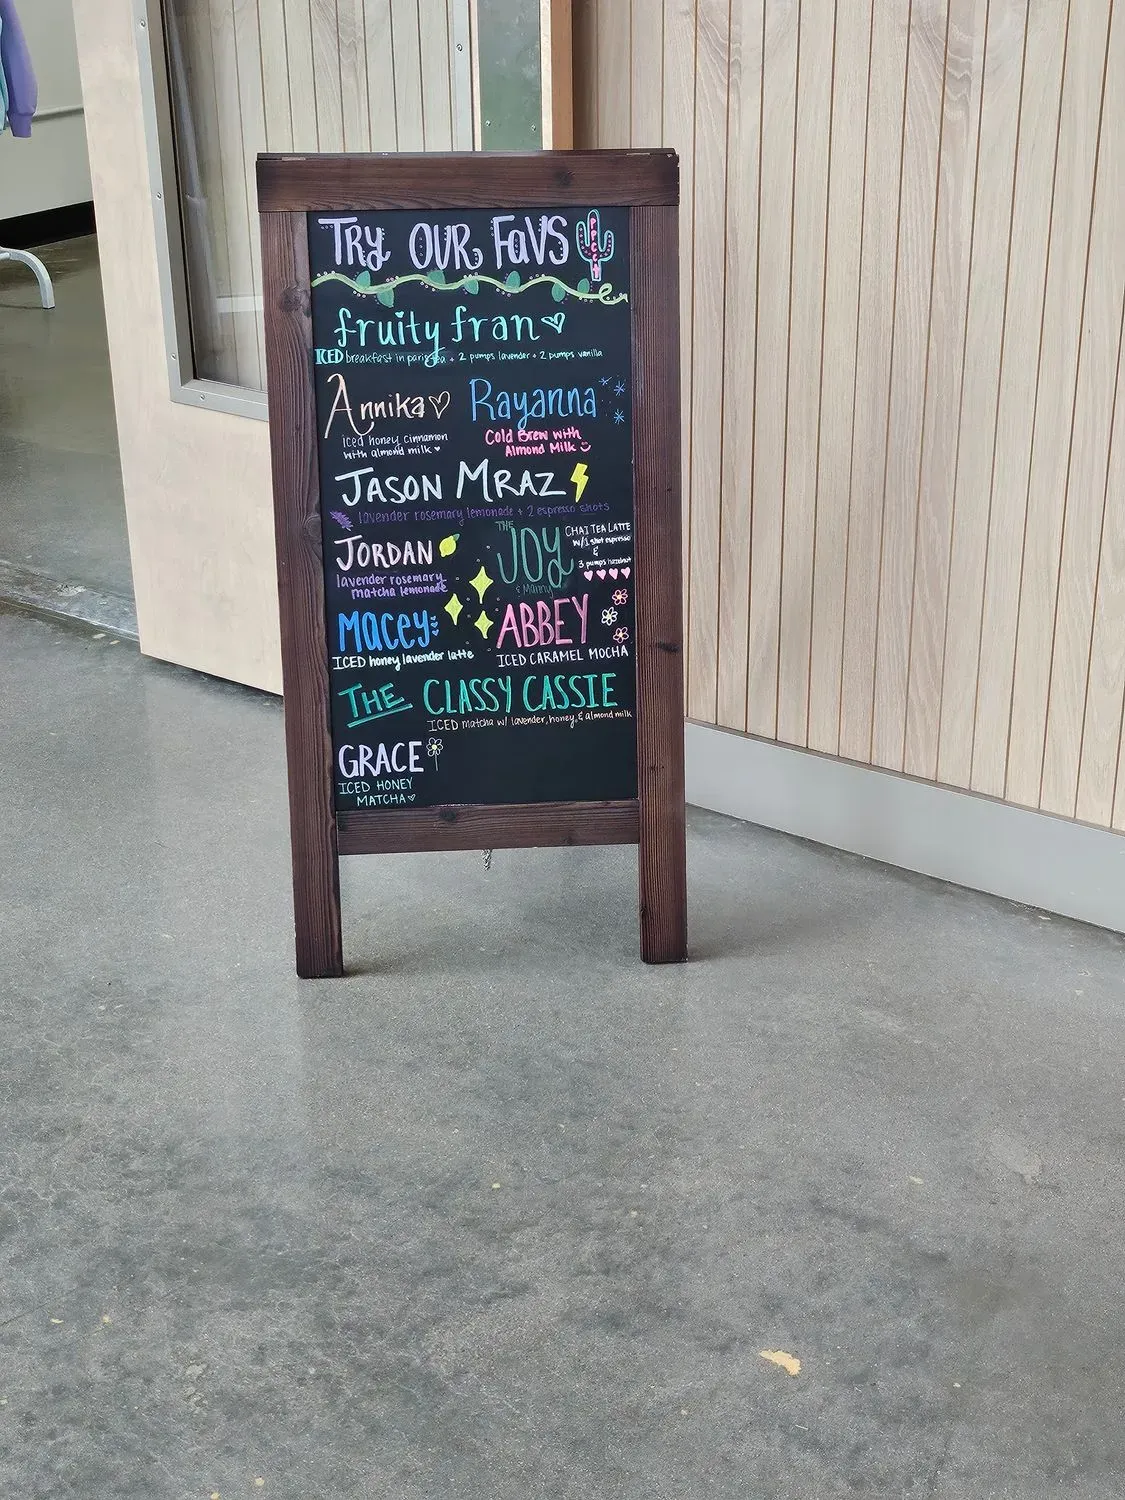 TRY OUR FAVS
fruity fran
ICED breakfast in paris tea + 2 pumps lavender + 2 pumps vanilla
Annika
iced honey cinnamon
with almond milk
Rayanna
Cold Brew with
Almond Milk
JASON MRAZ
lavender rosemary lemonade + 2 espresso shots
JORDAN
lavender rosemary
matcha lemonade
THE
JOY
& Manny
CHAI TEA LATTE
w/1 shot espresso
&
3 pumps hazelnut
Macey
ICED honey lavender latte
ABBEY
ICED CARAMEL MOCHA
THE CLASSY CASSIE
ICED matcha w/ lavender, honey, & almond milk
GRACE
ICED HONEY
MATCHA